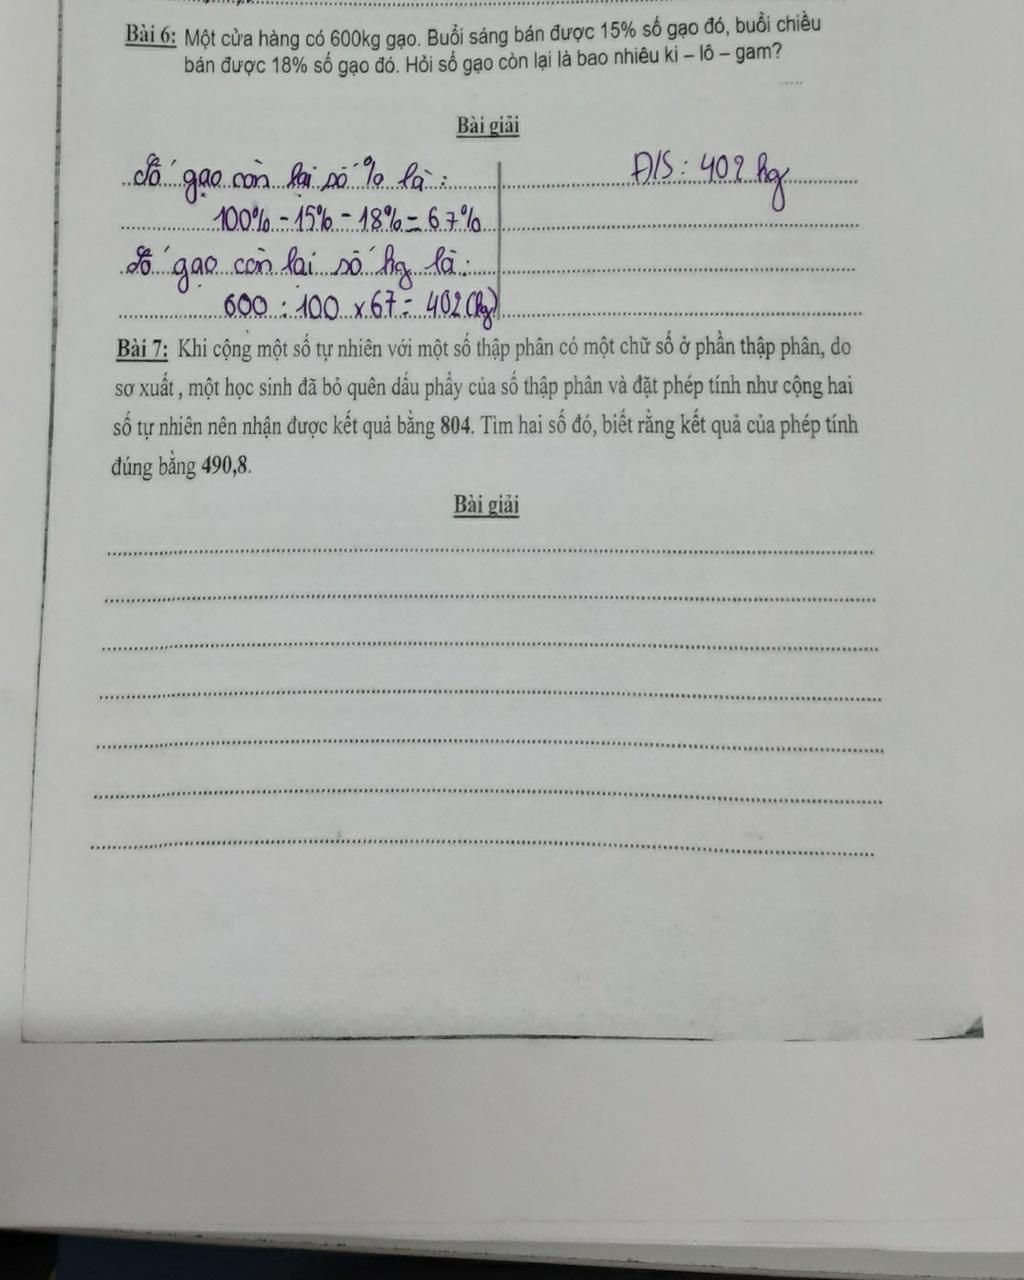 Bài 6: Một cửa hàng có 600kg gạo. Buổi sáng bán được 15% số gạo đó, buổi chiều
bán được 18% số gạo đó. Hỏi số gạo còn lại là bao nhiêu ki – lô – gam?
Bài giải
Số gạo còn lại số % là:
100% - 15% - 18% = 67%
Số gạo còn lại số kg là:
600 : 100 x 67 = 402 (kg)
Đ/S: 402 kg
Bài 7: Khi cộng một số tự nhiên với một số thập phân có một chữ số ở phần thập phân, do
sơ xuất , một học sinh đã bỏ quên dấu phẩy của số thập phân và đặt phép tính như cộng hai
số tự nhiên nên nhận được kết quả bằng 804. Tìm hai số đó, biết rằng kết quả của phép tính
đúng bằng 490,8.
Bài giải